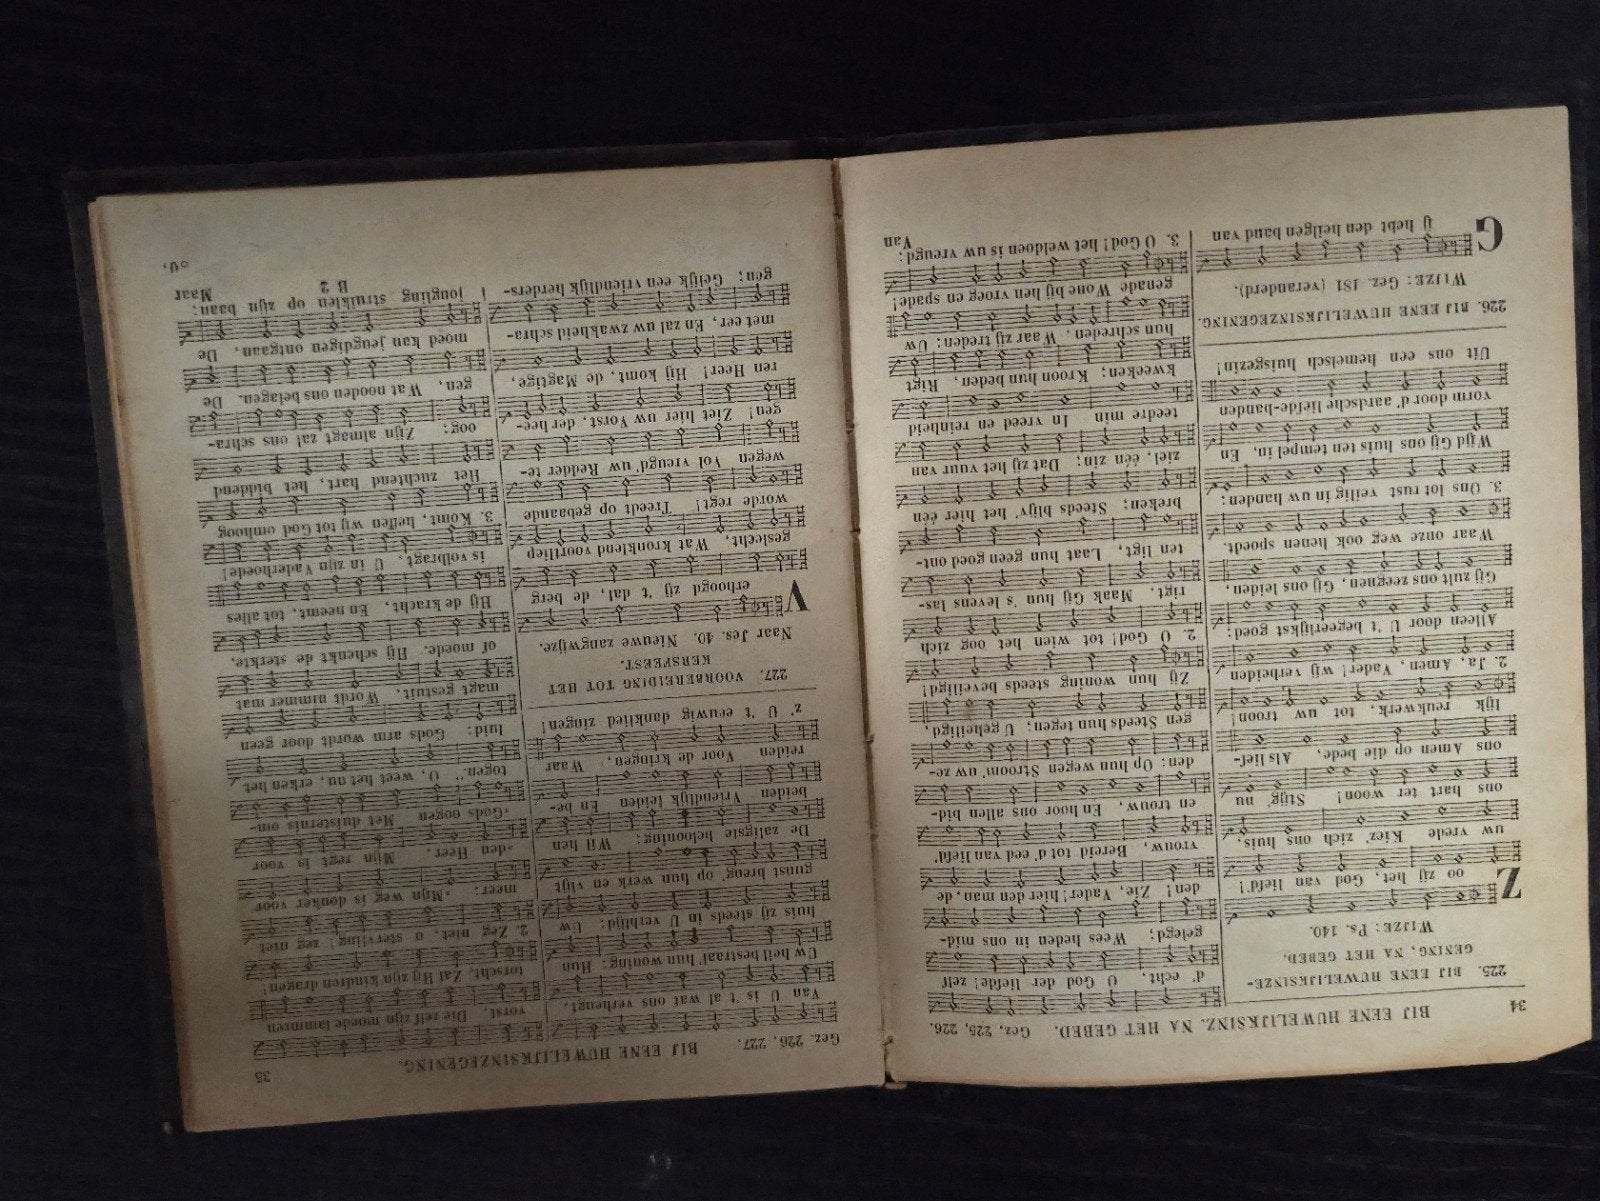 34
BIJ EENE HUWELIJKSINZ. NA HET GEBED. Gez. 225, 226.
225. BIJ EENE HUWELIJKSINZE-
GENING, NA HET GEBED.
WIJZE: Ps. 140.
Zoo zij het, God van liefd'!
uw vrede Kiez' zich ons huis,
ons hart ter woon! Stijg' nu
ons Amen op die bede, Als lief-
lijk reukwerk, tot uw troon!
2. Ja, Amen, Vader! wij verbeiden
Alleen door U 't begeerlijkst goed;
Gij zult ons zeegnen, Gij ons leiden,
Waar onze weg ook henen spoedt.
3. Ons lot rust veilig in uw handen;
Wijd Gij ons huis ten tempel in, En
vorm door d' aardsche liefde-banden
Uit ons een hemelsch huisgezin!
226. BIJ EENE HUWELIJKSINZEGENING.
WIJZE: Gez. 181 (veranderd).
Gij hebt den heiligen band van
d' echt, O God der liefde! zelf
gelegd; Wees heden in ons mid-
den! Zie, Vader! hier den man, de
vrouw, Bereid tot d' eed van liefd'
en trouw, En hoor ons allen bid-
den: Op hun wegen Stroom' uw ze-
gen Steeds hun tegen; U geheiligd,
Zij hun woning steeds beveiligd!
2. O God! tot wien het oog zich
rigt, Maak Gij hun 's levens las-
ten ligt, Laat hun geen goed ont-
breken; Steeds blijv' het hier één
ziel, één zin; Dat zij het vuur van
teedre min In vreed en reinheid
kweeken; Kroon hun beden, Rigt
hun schreden, Waar zij treden; Uw
genade Wone bij hen vroeg en spade!
3. O God! het weldoen is uw vreugd;
Van
BIJ EENE HUWELIJKSINZEGENING.
35
Gez. 226, 227.
Van U is 't al wat ons verheugt,
Uw heil bestraal' hun woning: Hun
huis zij steeds in U verblijd; Uw
gunst breng' op hun werk en vlijt
De zaligste belooning; Wil hen
beiden Vriendlijk leiden En be-
reiden Voor de kringen, Waar
z' U 't eeuwig danklied zingen!
227. VOORBEREIDING TOT HET
KERSFEEST.
Naar Jes. 40. Nieuwe zangwijze.
Verhoogd zij 't dal, de berg
geslecht, Wat kronklend voortliep
worde regt! Treedt op gebaande
wegen Vol vreugd' uw Redder te-
gen! Ziet hier uw Vorst, der hee-
ren Heer! Hij komt, de Magtige,
met eer, En zal uw zwakheid schra-
gen; Gelijk een vriendlijk herders-
vorst, Die zelf zijn moede lammren
torscht, Zal Hij zijn kindren dragen!
2. Zeg niet, o sterfling! zeg niet
meer: »Mijn weg is donker voor
»den Heer, Mijn regt is voor
»Gods oogen Met duisternis om-
togen." O, weet het nu, erken het
luid: Gods arm wordt door geen
magt gestuit, Wordt nimmer mat
of moede. Hij schenkt de sterkte,
Hij de kracht, En neemt, tot alles
is volbragt, U in zijn Vaderhoede!
3. Komt, heffen wij tot God omhoog
Het zuchtend hart, het biddend
oog; Zijn almagt zal ons schra-
gen, Wat nooden ons belagen. De
moed kan jeugdigen ontgaan, De
jongling struiklen op zijn baan:
B 2
Maar